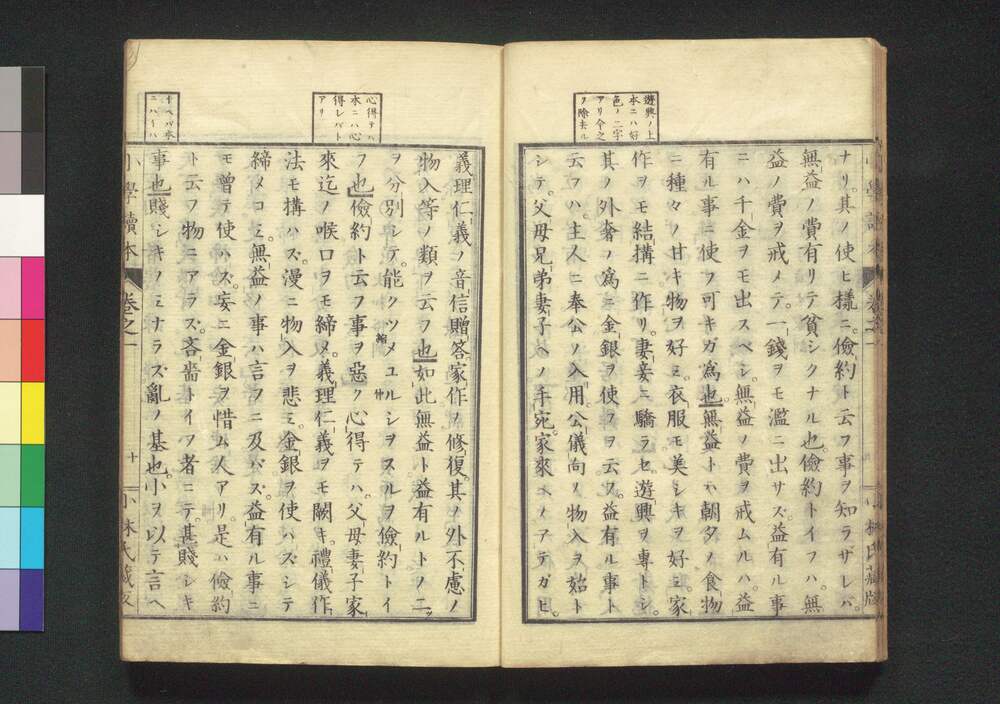 遊興ノ上
本ニハ好
色ノ二字
アリ今之
ヲ除去ル
ナリ。其ノ使ヒ樣ニ。儉約ト云フ事ヲ知ラザレバ。
無益ノ費有リテ貧シクナル也。儉約トイフハ。無
益ノ費ヲ戒メテ。一錢ヲモ濫ニ出サズ。益有ル事
ニハ千金ヲモ出スベシ。無益ノ費ヲ戒ムルハ。益
有ル事ニ使フ可キガ爲也。無益トハ朝夕ノ食物
ニ種々ノ甘キ物ヲ好ミ。衣服モ美シキヲ好ミ。家
作ヲモ結構ニ作リ。妻妾ニ驕ラセ。遊興ヲ專トシ。
其ノ外奢ノ爲ニ金銀ヲ使フヲ云フ。益有ル事ト
云フハ。主人ニ奉公ノ入用。公儀向ノ物入ヲ始ト
シテ。父母兄弟妻子ヘノ手宛。家來ヘノアテガヒ。
心得テハ
本ニハ心
得レバト
アリ
義理仁義ノ音信贈答。家作ノ修復。其ノ外不慮ノ
物入等ノ類ヲ云フ也。如此無益ト益有ルトノ二ッ
ヲ分別シテ。能クツメユルシヲスルヲ儉約トイ
フ也。儉約ト云フ事ヲ惡ク心得テハ。父母妻子家
來迄ノ喉口ヲモ締メ。義理仁義ヲモ闕キ。禮儀作
法モ構ハズ。漫ニ物入ヲ悲ミ。金銀ヲ使ハズシテ
締メコミ。無益ノ事ハ言フニ及バズ。益有ル事ニ
モ曾テ使ハズ。妄ニ金銀ヲ惜ム人アリ。是ハ儉約
ト云フ物ニアラズ。吝嗇トイフ者ニテ。甚賤シキ
事也。賤シキノミナラズ亂ノ基也。小ヲ以テ言ヘ
小學讀本
卷之一
十
小林氏藏版